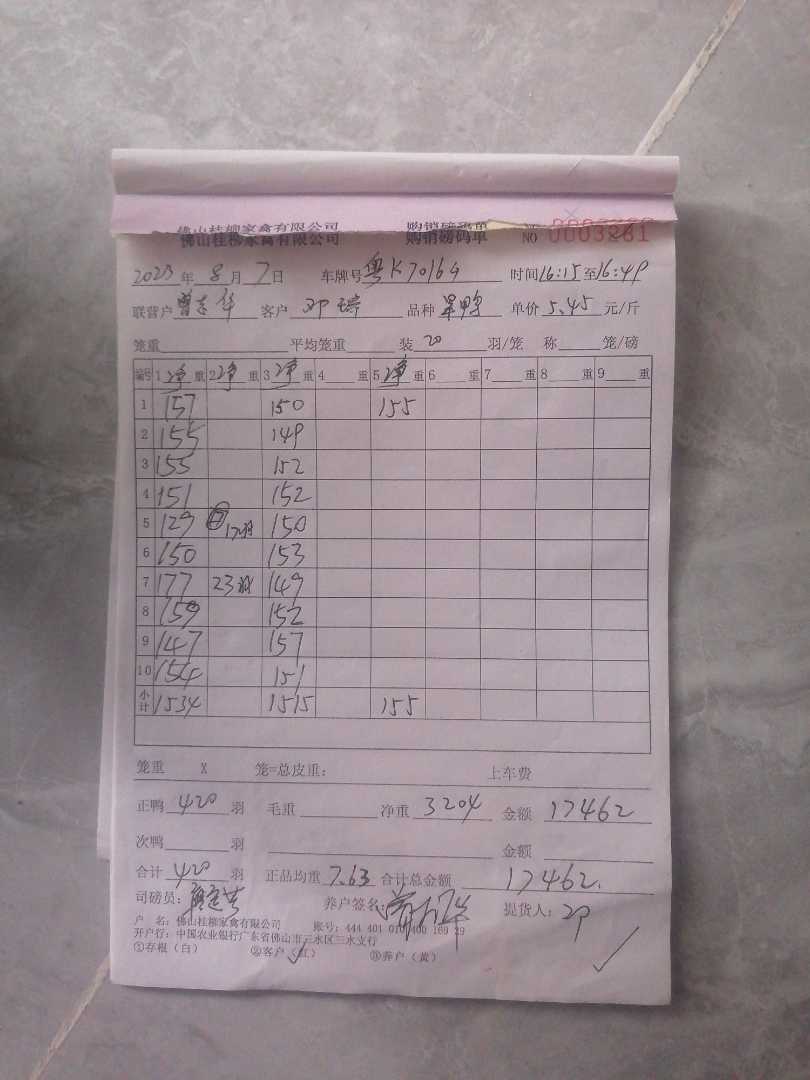 佛山桂柳家禽有限公司 购销磅码单 NO
佛山桂柳家禽有限公司 购销磅码单 NO 0003261
2023 年 8 月 7 日 车牌号 粤K7016G 时间 16:15 至 16:49
联营户 曾志华 客户 邓 品种 单价 5.45 元/斤
笼重 平均笼重 装 20 羽/笼 称 笼/磅
编号 1 净 重 2 净 重 3 净 重 4 重 5 净 重 6 重 7 重 8 重 9 重
1 157 150 155
2 155 149
3 155 152
4 151 152
5 129 17羽 150
6 150 153
7 177 23羽 149
8 159 152
9 147 157
10 154 151
小计 1534 1515 155
笼重 X 笼=总皮重: 上车费
正鸭 420 羽 毛重 净重 3204 金额 17462
次鸭 羽 金额
合计 420 羽 正品均重 7.63 合计总金额 17462.
司磅员: 养户签名: 提货人: 邓
户 名: 佛山桂柳家禽有限公司 账号: 444 401 010 400 169 29
开户行: 中国农业银行广东省佛山市三水区三水支行
①存根(白) ②客户(红) ③养户(黄)